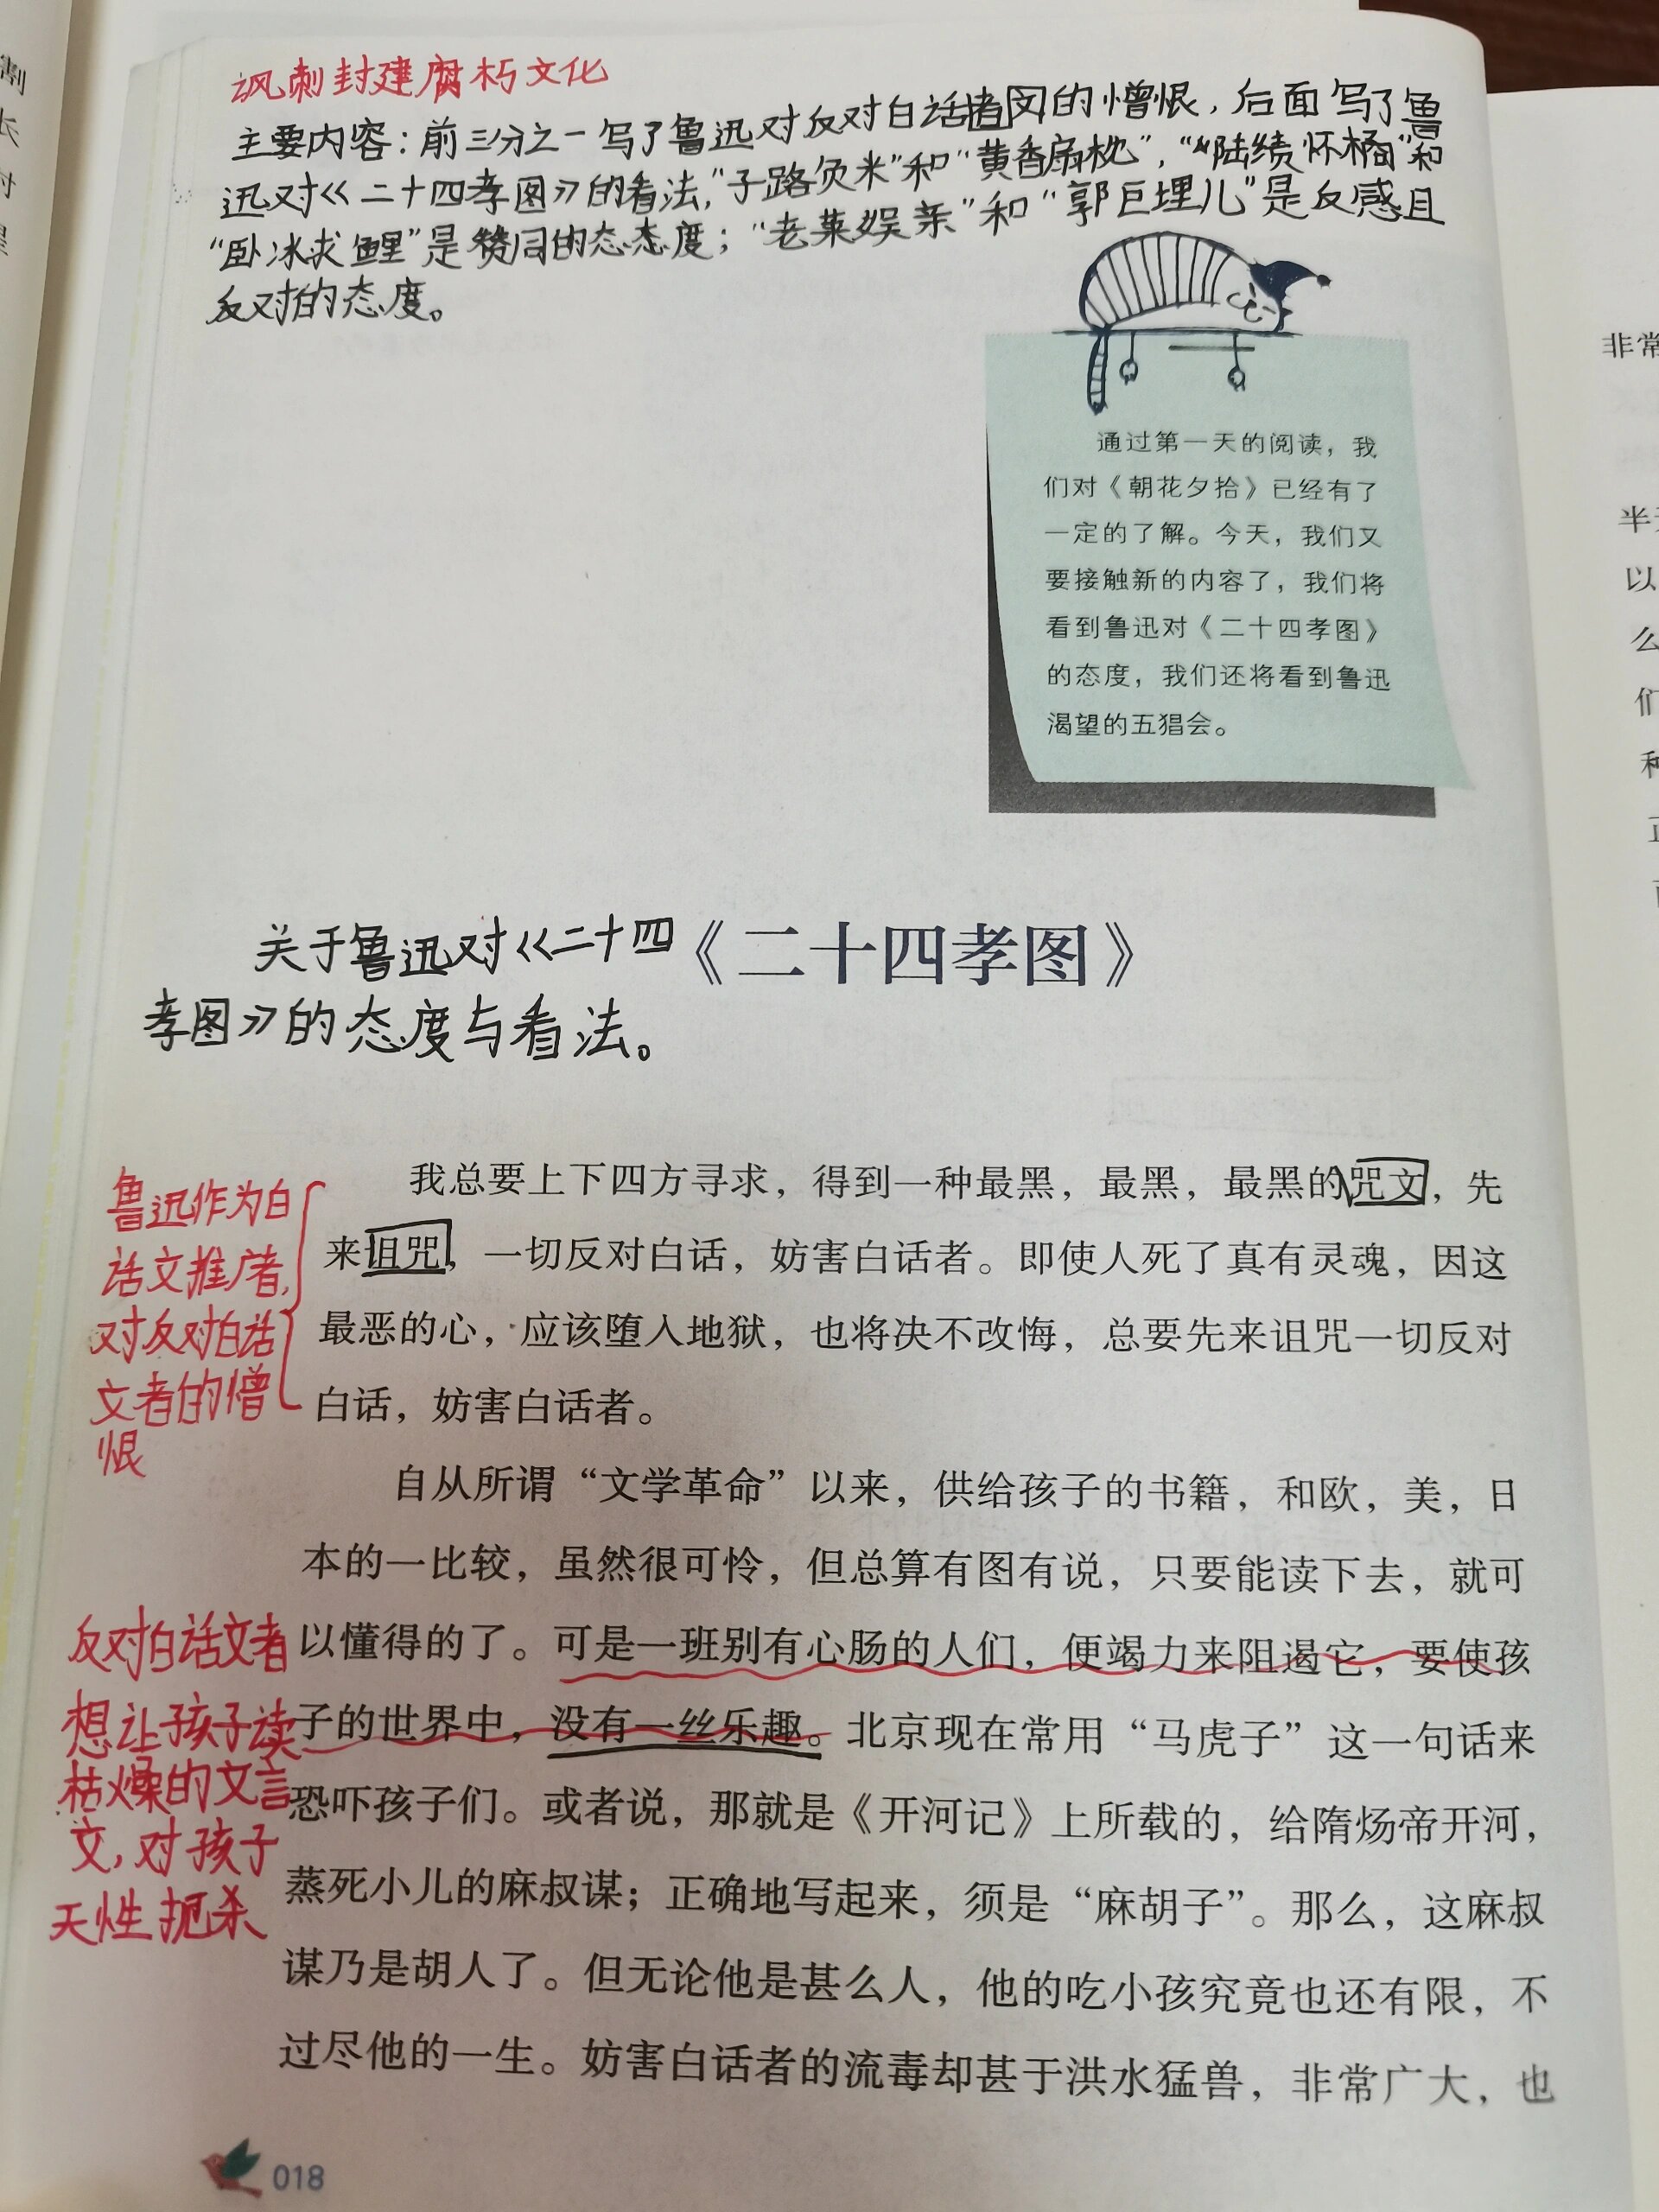 讽刺封建腐朽文化
主要内容：前三分之一写了鲁迅对反对白话者的憎恨，后面写了鲁
迅对《二十四孝图》的看法，“子路负米”和“黄香扇枕”，“陆绩怀橘”和
“卧冰求鲤”是赞同的态态度；“老莱娱亲”和“郭巨埋儿”是反感且
反对的态度。
通过第一天的阅读，我
们对《朝花夕拾》已经有了
一定的了解。今天，我们又
要接触新的内容了，我们将
看到鲁迅对《二十四孝图》
的态度，我们还将看到鲁迅
渴望的五猖会。
关于鲁迅对《二十四
孝图》的态度与看法。
《二十四孝图》
鲁迅作为白
话文推广者，
对反对白话
文者的憎
恨
我总要上下四方寻求，得到一种最黑，最黑，最黑的咒文，先
来诅咒，一切反对白话，妨害白话者。即使人死了真有灵魂，因这
最恶的心，应该堕入地狱，也将决不改悔，总要先来诅咒一切反对
白话，妨害白话者。
自从所谓“文学革命”以来，供给孩子的书籍，和欧，美，日
本的一比较，虽然很可怜，但总算有图有说，只要能读下去，就可
以懂得的了。可是一班别有心肠的人们，便竭力来阻遏它，要使孩
子的世界中，没有一丝乐趣。北京现在常用“马虎子”这一句话来
恐吓孩子们。或者说，那就是《开河记》上所载的，给隋炀帝开河，
蒸死小儿的麻叔谋；正确地写起来，须是“麻胡子”。那么，这麻叔
谋乃是胡人了。但无论他是甚么人，他的吃小孩究竟也还有限，不
过尽他的一生。妨害白话者的流毒却甚于洪水猛兽，非常广大，也
反对白话文者
想让孩子读
枯燥的文言
文，对孩子
天性扼杀
018
非常
半
以
么
们